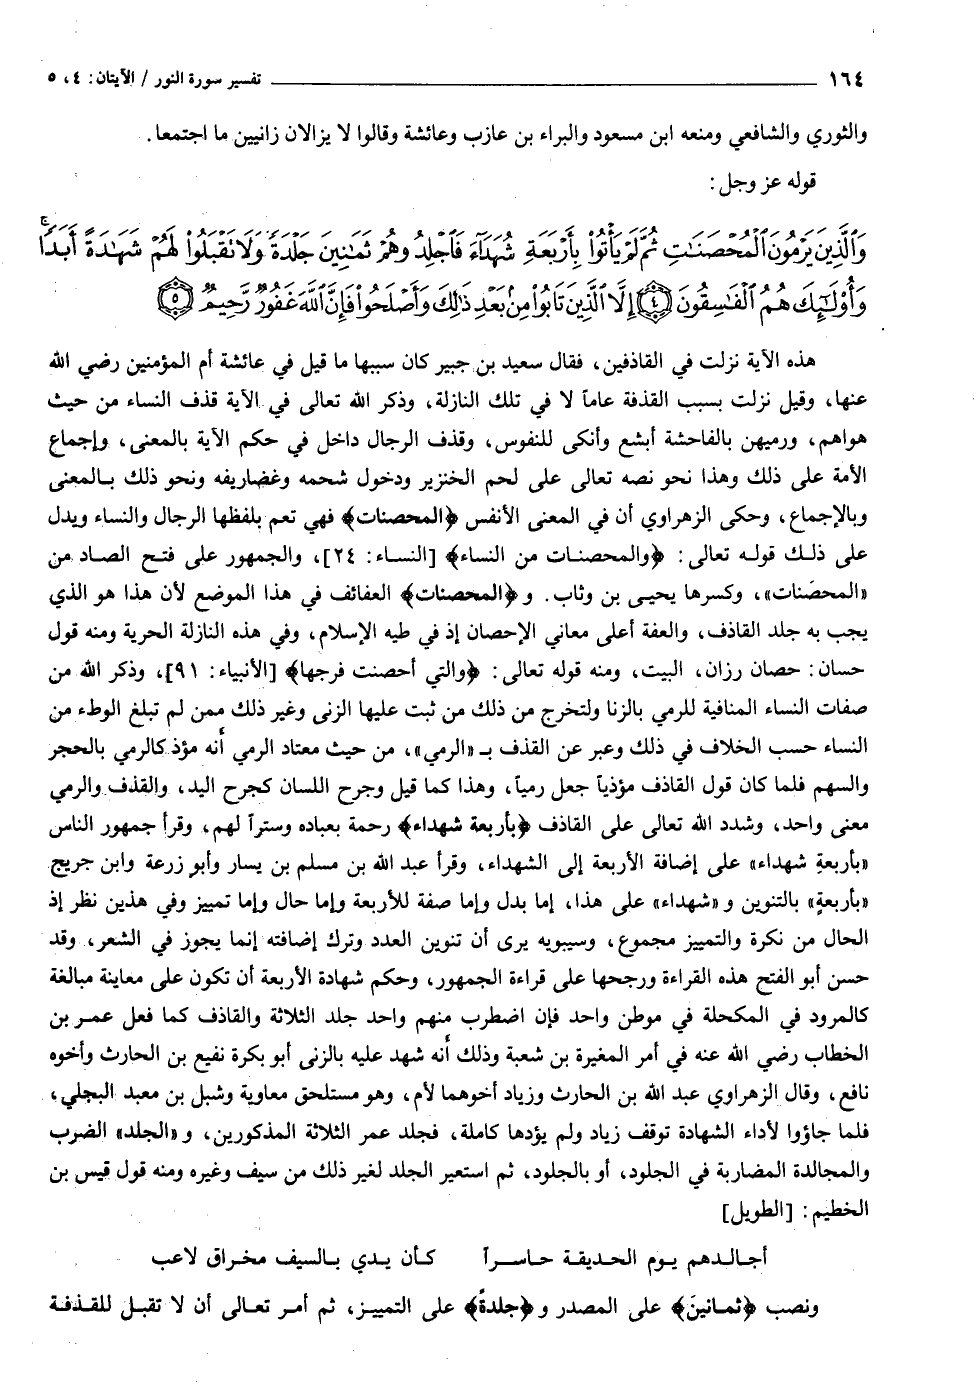 ١٦٤ ـــــــــــــــــــــ تفسير سورة النور / الآيتان: ٤، ٥
والثوري والشافعي ومنعه ابن مسعود والبراء بن عازب وعائشة وقالوا لا يزالان زانيين ما اجتمعا.
قوله عز وجل:
وَالَّذِينَ يَرْمُونَ الْمُحْصَنَٰتِ ثُمَّ لَمْ يَأْتُوا۟ بِأَرْبَعَةِ شُهَدَآءَ فَاجْلِدُوهُمْ ثَمَٰنِينَ جَلْدَةً وَلَا تَقْبَلُوا۟ لَهُمْ شَهَٰدَةً أَبَدًا ۚ
وَأُو۟لَٰٓئِكَ هُمُ الْفَٰسِقُونَ ﴿٤﴾ إِلَّا الَّذِينَ تَابُوا۟ مِنۢ بَعْدِ ذَٰلِكَ وَأَصْلَحُوا۟ فَإِنَّ اللَّهَ غَفُورٌ رَّحِيمٌ ﴿٥﴾
هذه الآية نزلت في القاذفين، فقال سعيد بن جبير كان سببها ما قيل في عائشة أم المؤمنين رضي الله
عنها، وقيل نزلت بسبب القذفة عاماً لا في تلك النازلة، وذكر الله تعالى في الآية قذف النساء من حيث
هواهم، ورميهن بالفاحشة أبشع وأنكى للنفوس، وقذف الرجال داخل في حكم الآية بالمعنى، وإجماع
الأمة على ذلك وهذا نحو نصه تعالى على لحم الخنزير ودخول شحمه وغضاريفه ونحو ذلك بالمعنى
وبالإجماع، وحكى الزهراوي أن في المعنى الأنفس ﴿المحصنات﴾ فهي تعم بلفظها الرجال والنساء ويدل
على ذلك قوله تعالى: ﴿والمحصنات من النساء﴾ [النساء: ٢٤]، والجمهور على فتح الصاد من
«المحصَنات»، وكسرها يحيى بن وثاب. و﴿المحصنات﴾ العفائف في هذا الموضع لأن هذا هو الذي
يجب به جلد القاذف، والعفة أعلى معاني الإحصان إذ في طيه الإسلام، وفي هذه النازلة الحرية ومنه قول
حسان: حصان رزان، البيت، ومنه قوله تعالى: ﴿والتي أحصنت فرجها﴾ [الأنبياء: ٩١]، وذكر الله من
صفات النساء المنافية للرمي بالزنا ولتخرج من ذلك من ثبت عليها الزنى وغير ذلك ممن لم تبلغ الوطء من
النساء حسب الخلاف في ذلك وعبر عن القذف بـ «الرمي»، من حيث معتاد الرمي أنه مؤذ كالرمي بالحجر
والسهم فلما كان قول القاذف مؤذياً جعل رمياً، وهذا كما قيل وجرح اللسان كجرح اليد، والقذف والرمي
معنى واحد، وشدد الله تعالى على القاذف ﴿بأربعة شهداء﴾ رحمة بعباده وستراً لهم، وقرأ جمهور الناس
«بأربعةِ شهداء» على إضافة الأربعة إلى الشهداء، وقرأ عبد الله بن مسلم بن يسار وأبو زرعة وابن جريج
«بأربعةٍ» بالتنوين و«شهداء» على هذا، إما بدل وإما صفة للأربعة وإما حال وإما تمييز وفي هذين نظر إذ
الحال من نكرة والتمييز مجموع، وسيبويه يرى أن تنوين العدد وترك إضافته إنما يجوز في الشعر، وقد
حسن أبو الفتح هذه القراءة ورجحها على قراءة الجمهور، وحكم شهادة الأربعة أن تكون على معاينة مبالغة
كالمرود في المكحلة في موطن واحد فإن اضطرب منهم واحد جلد الثلاثة والقاذف كما فعل عمر بن
الخطاب رضي الله عنه في أمر المغيرة بن شعبة وذلك أنه شهد عليه بالزنى أبو بكرة نفيع بن الحارث وأخوه
نافع، وقال الزهراوي عبد الله بن الحارث وزياد أخوهما لأم، وهو مستلحق معاوية وشبل بن معبد البجلي،
فلما جاؤوا لأداء الشهادة توقف زياد ولم يؤدها كاملة، فجلد عمر الثلاثة المذكورين، و«الجلد» الضرب
والمجالدة المضاربة في الجلود، أو بالجلود، ثم استعير الجلد لغير ذلك من سيف وغيره ومنه قول قيس بن
الخطيم: [الطويل]
أجالدهم يوم الحديقة حاسراً كأن يدي بالسيف مخراق لاعب
ونصب ﴿ثمانينَ﴾ على المصدر و﴿جلدةً﴾ على التمييز، ثم أمر تعالى أن لا تقبل للقذفة